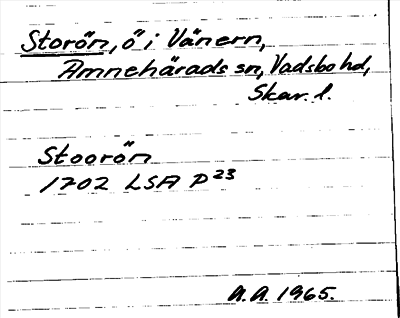 Storön, ö i Vänern,
Amnehärads sn, Vadsbo hd,
Skar. l.
Stoorön
1702 LSA P23
A.A. 1965.